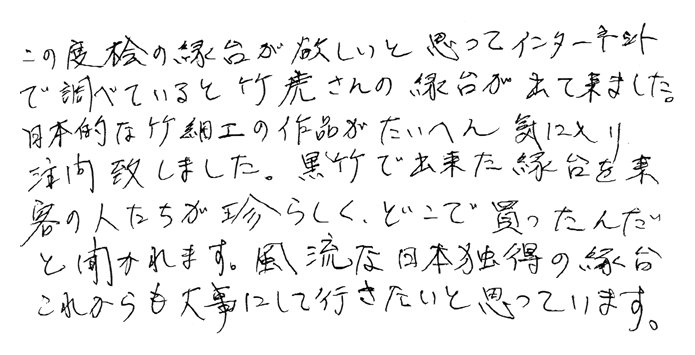 この度桧の縁台が欲しいと思ってインターネット
で調べていると竹虎さんの縁台が出て来ました。
日本的な竹細工の作品がたいへん気に入り
注向致しました。黒竹で出来た縁台を来
客の人たちが珍らしく、どこで買ったんだい
と聞かれます。風流な日本独得の縁台
これからも大事にして行きたいと思っています。